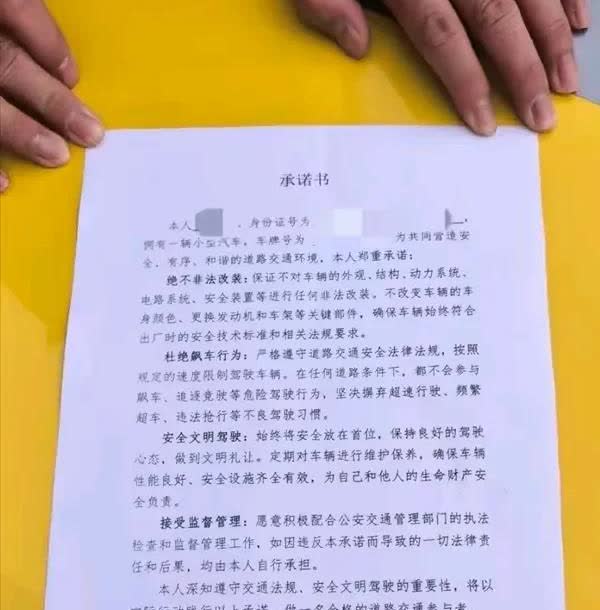 承诺书
本人 ，身份证号为 ，
拥有一辆小型汽车，车牌号为 为共同营造安
全、有序、和谐的道路交通环境，本人郑重承诺：
绝不非法改装：保证不对车辆的外观、结构、动力系统、
电路系统、安全装置等进行任何非法改装。不改变车辆的车
身颜色、更换发动机和车架等关键部件，确保车辆始终符合
出厂时的安全技术标准和相关法规要求。
杜绝飙车行为：严格遵守道路交通安全法律法规，按照
规定的速度限制驾驶车辆。在任何道路条件下，都不会参与
飙车、追逐竞驶等危险驾驶行为，坚决摒弃超速行驶、频繁
超车、违法抢行等不良驾驶习惯。
安全文明驾驶：始终将安全放在首位，保持良好的驾驶
心态，做到文明礼让。定期对车辆进行维护保养，确保车辆
性能良好、安全设施齐全有效，为自己和他人的生命财产安
全负责。
接受监督管理：愿意积极配合公安交通管理部门的执法
检查和监督管理工作，如因违反本承诺而导致的一切法律责
任和后果，均由本人自行承担。
本人深知遵守交通法规、安全文明驾驶的重要性，将以
实际行动践行以上承诺，做一名合格的道路交通参与者。